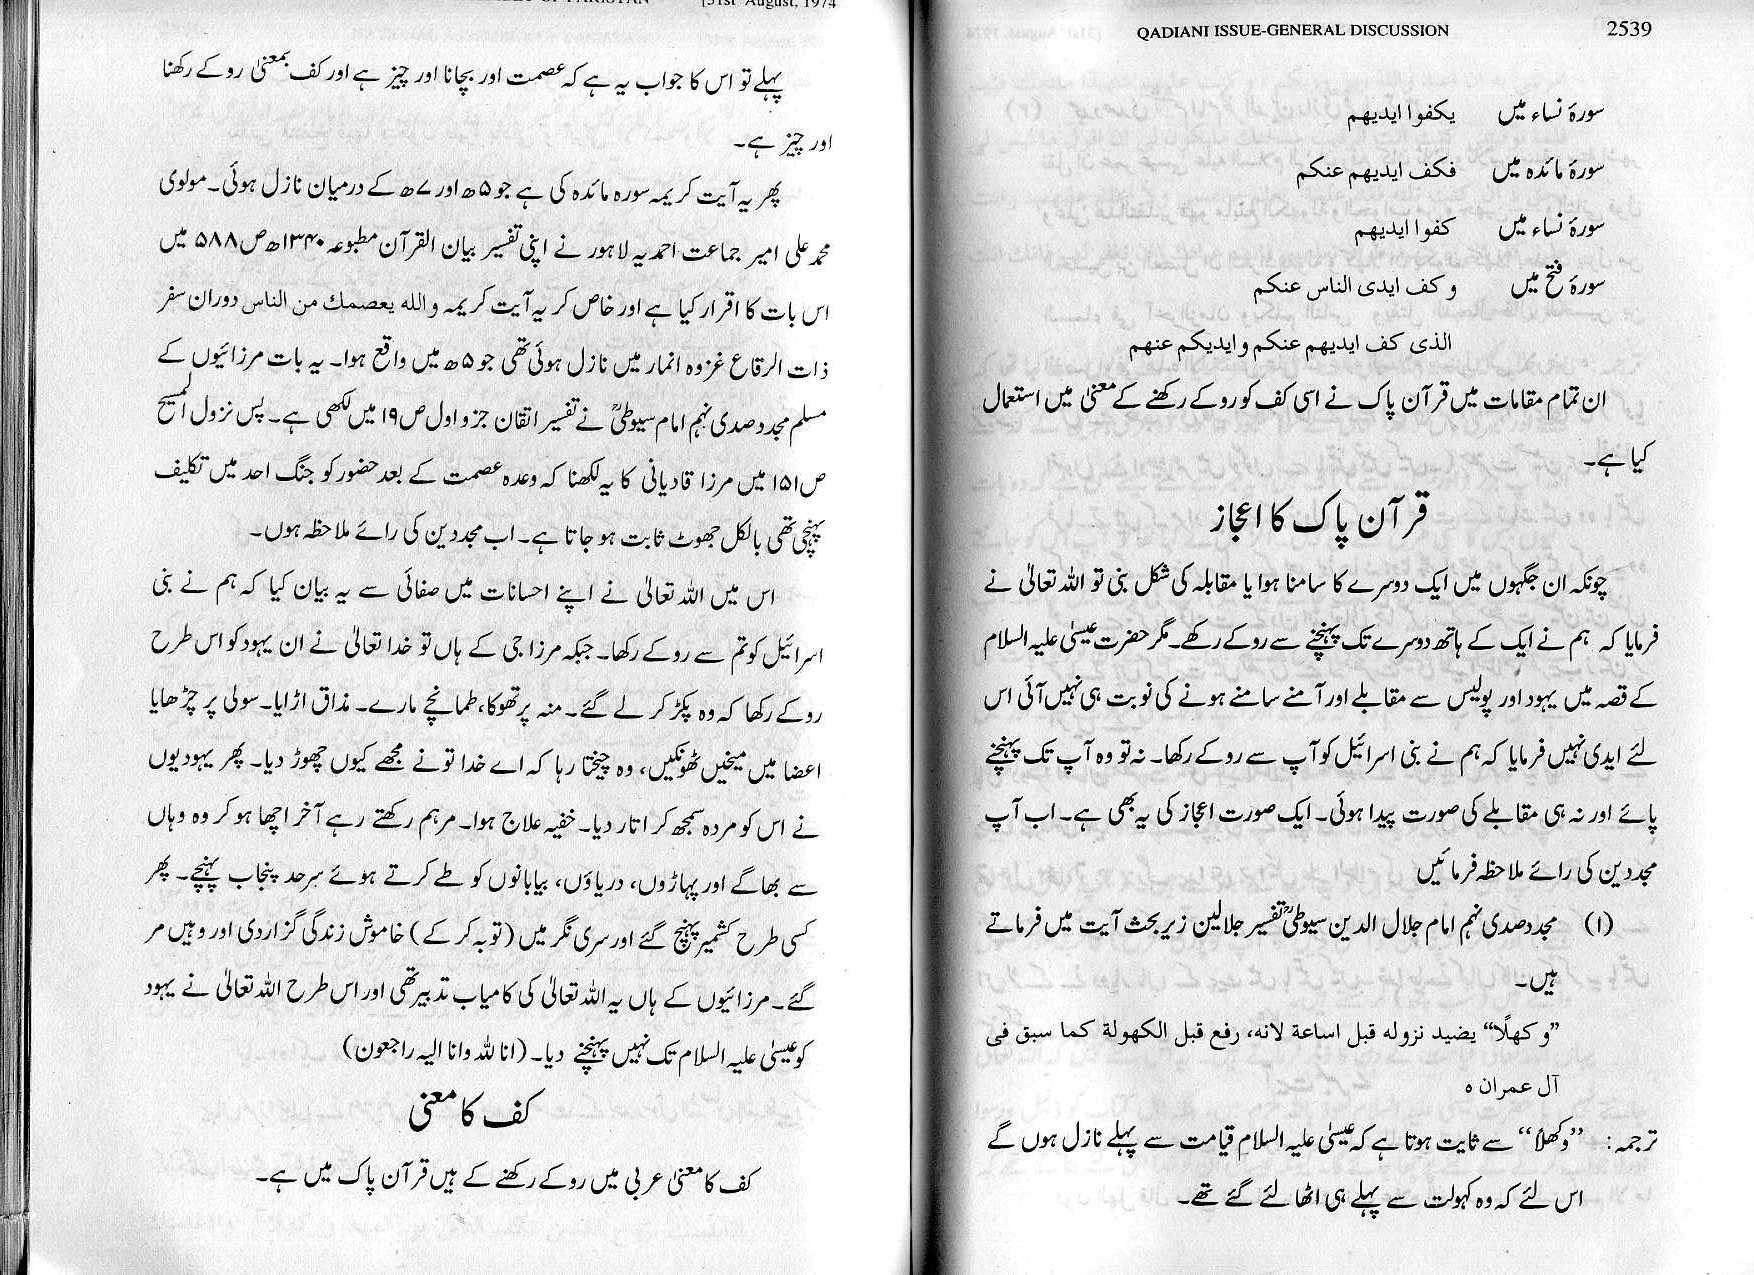 OF PAKISTAN [31st August, 1974
پہلے تو اس کا جواب یہ ہے کہ عصمت اور بچانا اور چیز ہے اور کف بمعنی روکے رکھنا
اور چیز ہے۔
پھر یہ آیت کریمہ سورہ مائدہ کی ہے جو ۵ھ اور ۷ھ کے درمیان نازل ہوئی۔ مولوی
محمد علی امیر جماعت احمدیہ لاہور نے اپنی تفسیر بیان القرآن مطبوعہ ۱۳۴۰ھ ص ۵۸۸ میں
اس بات کا اقرار کیا ہے اور خاص کر یہ آیت کریمہ والله یعصمك من الناس دوران سفر
ذات الرقاع غزوہ انمار میں نازل ہوئی تھی جو ۵ھ میں واقع ہوا۔ یہ بات مرزائیوں کے
مسلم مجدد صدی نہم امام سیوطیؒ نے تفسیر اتقان جزو اول ص ۱۹ میں لکھی ہے۔ پس نزول المسیح
ص ۱۵۱ میں مرزا قادیانی کا یہ لکھنا کہ وعدہ عصمت کے بعد حضور کو جنگ احد میں تکلیف
پہنچی تھی بالکل جھوٹ ثابت ہو جاتا ہے۔ اب مجددین کی رائے ملاحظہ ہوں۔
اس میں اللہ تعالیٰ نے اپنے احسانات میں صفائی سے یہ بیان کیا کہ ہم نے بنی
اسرائیل کو تم سے روکے رکھا۔ جبکہ مرزا جی کے ہاں تو خدا تعالیٰ نے ان یہود کو اس طرح
روکے رکھا کہ وہ پکڑ کر لے گئے۔ منہ پر تھوکا، طمانچے مارے۔ مذاق اڑایا۔ سولی پر چڑھایا
اعضا میں میخیں ٹھونکیں، وہ چیختا رہا کہ اے خدا تو نے مجھے کیوں چھوڑ دیا۔ پھر یہودیوں
نے اس کو مردہ سمجھ کر اتار دیا۔ خفیہ علاج ہوا۔ مرہم رکھتے رہے آخر اچھا ہو کر وہ وہاں
سے بھاگے اور پہاڑوں، دریاؤں، بیابانوں کو طے کرتے ہوئے سرحد پنجاب پہنچے۔ پھر
کسی طرح کشمیر پہنچ گئے اور سری نگر میں (توبہ کر کے) خاموش زندگی گزار دی اور وہیں مر
گئے۔ مرزائیوں کے ہاں یہ اللہ تعالیٰ کی کامیاب تدبیر تھی اور اس طرح اللہ تعالیٰ نے یہود
کو عیسیٰ علیہ السلام تک نہیں پہنچنے دیا۔ (انا للہ وانا الیہ راجعون)
کف کا معنی
کف کا معنی عربی میں روکے رکھنے کے ہیں قرآن پاک میں ہے۔
QADIANI ISSUE-GENERAL DISCUSSION 2539
سورۂ نساء میں یکفوا ایدیھم
سورۂ مائدہ میں فکف ایدیھم عنکم
سورۂ نساء میں کفوا ایدیھم
سورۂ فتح میں و کف ایدی الناس عنکم
الذی کف ایدیھم عنکم و ایدیکم عنھم
ان تمام مقامات میں قرآن پاک نے اسی کف کو روکے رکھنے کے معنیٰ میں استعمال
کیا ہے۔
قرآن پاک کا اعجاز
چونکہ ان جگہوں میں ایک دوسرے کا سامنا ہوا یا مقابلہ کی شکل بنی تو اللہ تعالیٰ نے
فرمایا کہ ہم نے ایک کے ہاتھ دوسرے تک پہنچنے سے روکے رکھے۔ مگر حضرت عیسیٰ علیہ السلام
کے قصہ میں یہود اور پولیس سے مقابلے اور آمنے سامنے ہونے کی نوبت ہی نہیں آئی اس
لئے ایدی نہیں فرمایا کہ ہم نے بنی اسرائیل کو آپ سے روکے رکھا۔ نہ تو وہ آپ تک پہنچنے
پائے اور نہ ہی مقابلے کی صورت پیدا ہوئی۔ ایک صورت اعجاز کی یہ بھی ہے۔ اب آپ
مجددین کی رائے ملاحظہ فرمائیں
(۱) مجدد صدی نہم امام جلال الدین سیوطیؒ تفسیر جلالین زیر بحث آیت میں فرماتے
ہیں۔
”و کھلًا“ یضید نزوله قبل اساعة لانه، رفع قبل الکھولة کما سبق فی
آل عمران ہ
ترجمہ: ”وکھلًا“ سے ثابت ہوتا ہے کہ عیسیٰ علیہ السلام قیامت سے پہلے نازل ہوں گے
اس لئے کہ وہ کہولت سے پہلے ہی اٹھا لئے گئے تھے۔